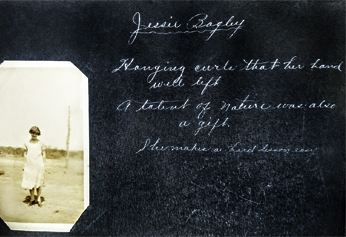 Jessie Bagley
Hanging curls that her hand
will lift
A talent of nature was also
a gift.
She makes a hard lesson easy